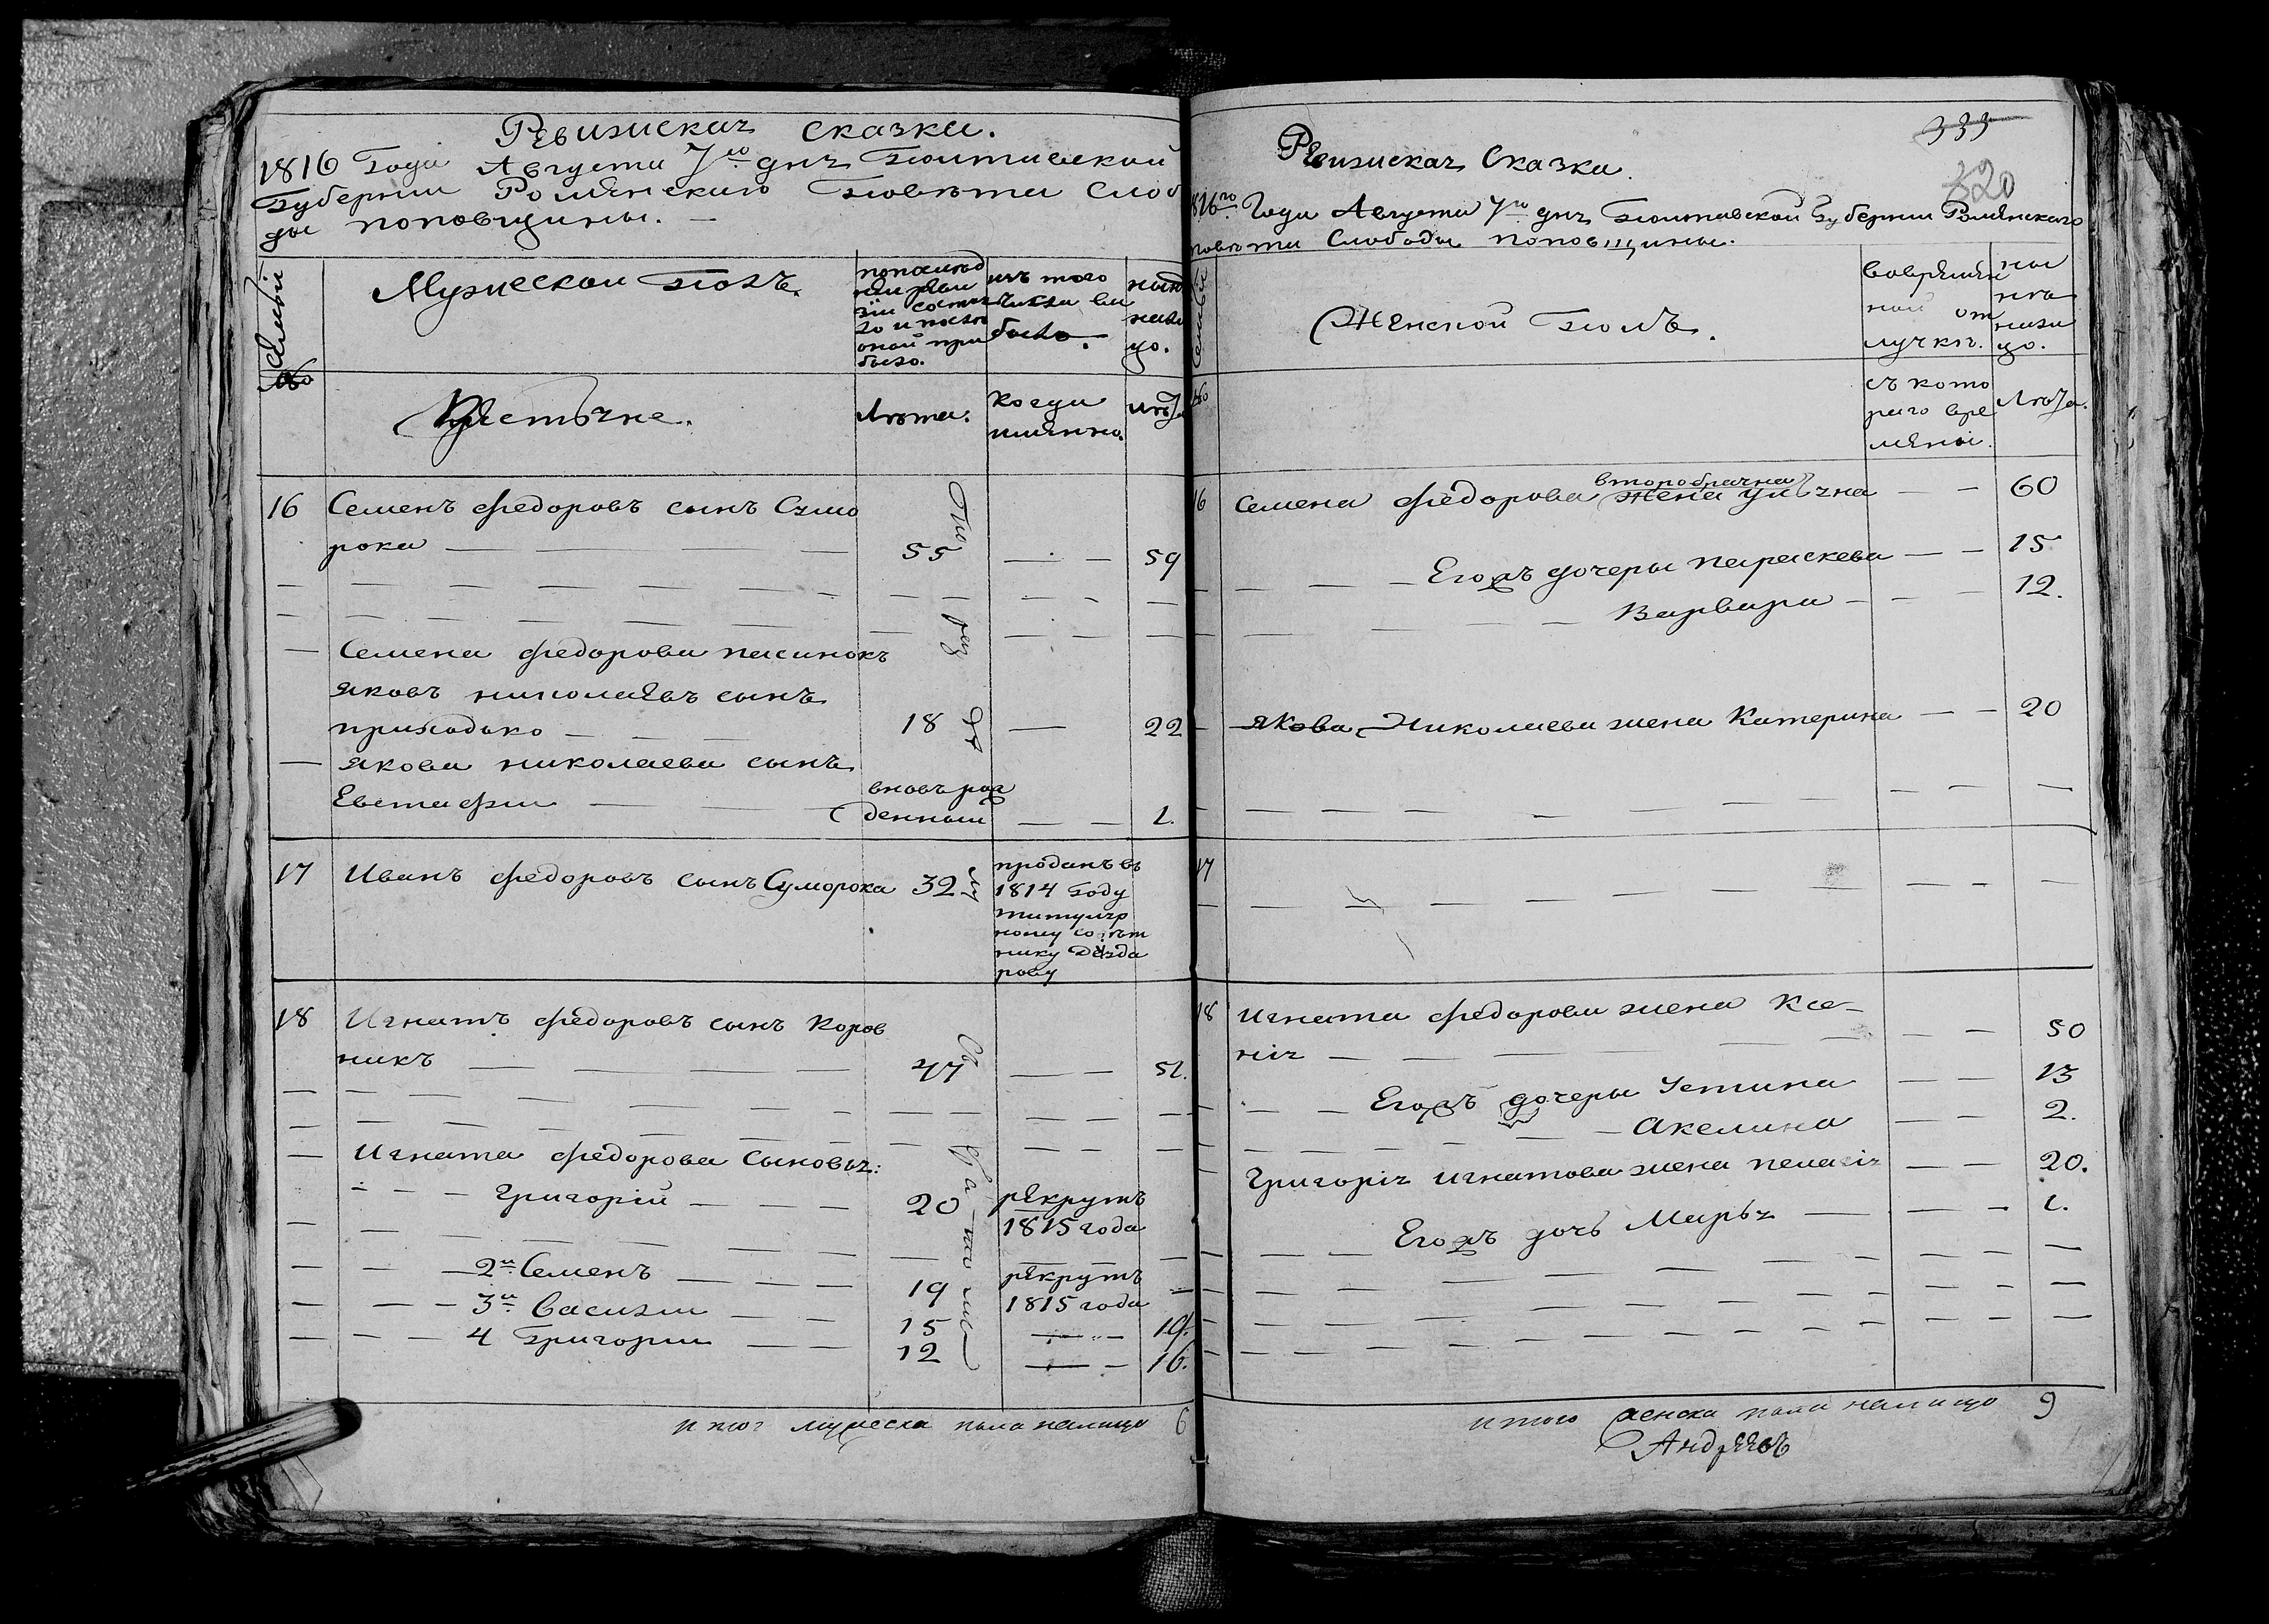 Ревизиская сказка.
1816 Года Августа 7го дня Полтавской
Губернии Роменскаго Повета Слобо
ды поповщины. —
Семьи
Мужеской Полъ.
по послед
ней реви
зіи состоя
ло и после
оной при
было.
изъ того
числа вы
было.
ныне
нали
цо.
№
Крестьяне.
Лета.
когда
именно.
лета
16 Семенъ Федоровъ сынъ Сумо
рока — 55 — — 59
Семена Федорова пасинокъ
Яковъ николаевъ сынъ
приходько — 18 — 22
Якова николаева сынъ
Евстафи — вновь рож
денный — — 1.
17 Иванъ Федоровъ сынъ Суморока 32
проданъ въ
1814 Году
титуляр
ному совет
нику
рову
18 Игнатъ Федоровъ сынъ Коров
никъ — 47 — — 51.
Игната Федорова Сыновья:
Григорій — 20 рекрутъ
1815 года
2й Семенъ — 19 рекрутъ
1815 года
3й Василии — 15 — 19.
4 Григории — 12 — 16.
итог мужеска пола налицо 6
333
320
Ревизиская Сказка.
1816го Года Августа 7го дня Полтавской Губернии Роменскаго
повета Слободы поповщины.
Семьи
Женской Полъ.
во времен
ной от
лучке.
ны
не
нали
цо.
№
съ кото
раго вре
мени.
Лета.
второбрачна
16 Семена Федорова жена Улияна — — 60
Егожъ дочеры Параскева — — 15
Варвара — — 12.
Якова Николаева жена Катерина — — 20
17
18 Игната Федорова жена Ксе-
нія — — 50
Егожъ дочеры Устина — — 13
Акелина — — 2.
Григорія Игнатова жена пелагія — — 20.
Егожъ дочь Марья — — 1.
итого женска пола налицо 9
Андреевъ